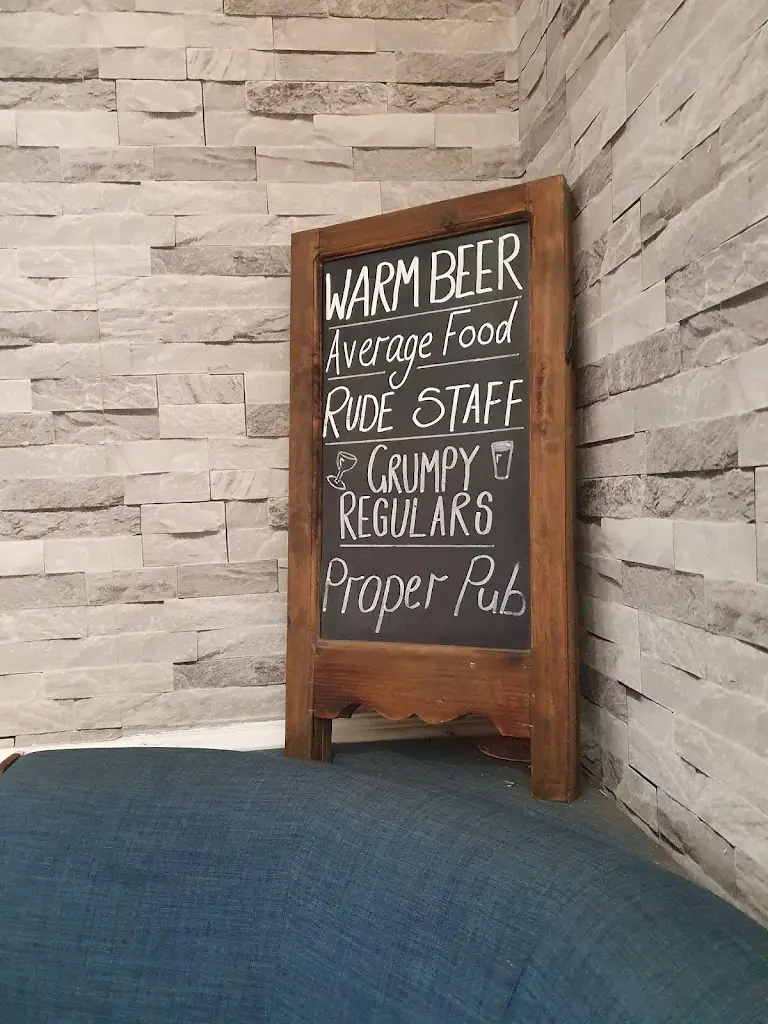 WARM BEER
Average Food
RUDE STAFF
GRUMPY
REGULARS
Proper Pub